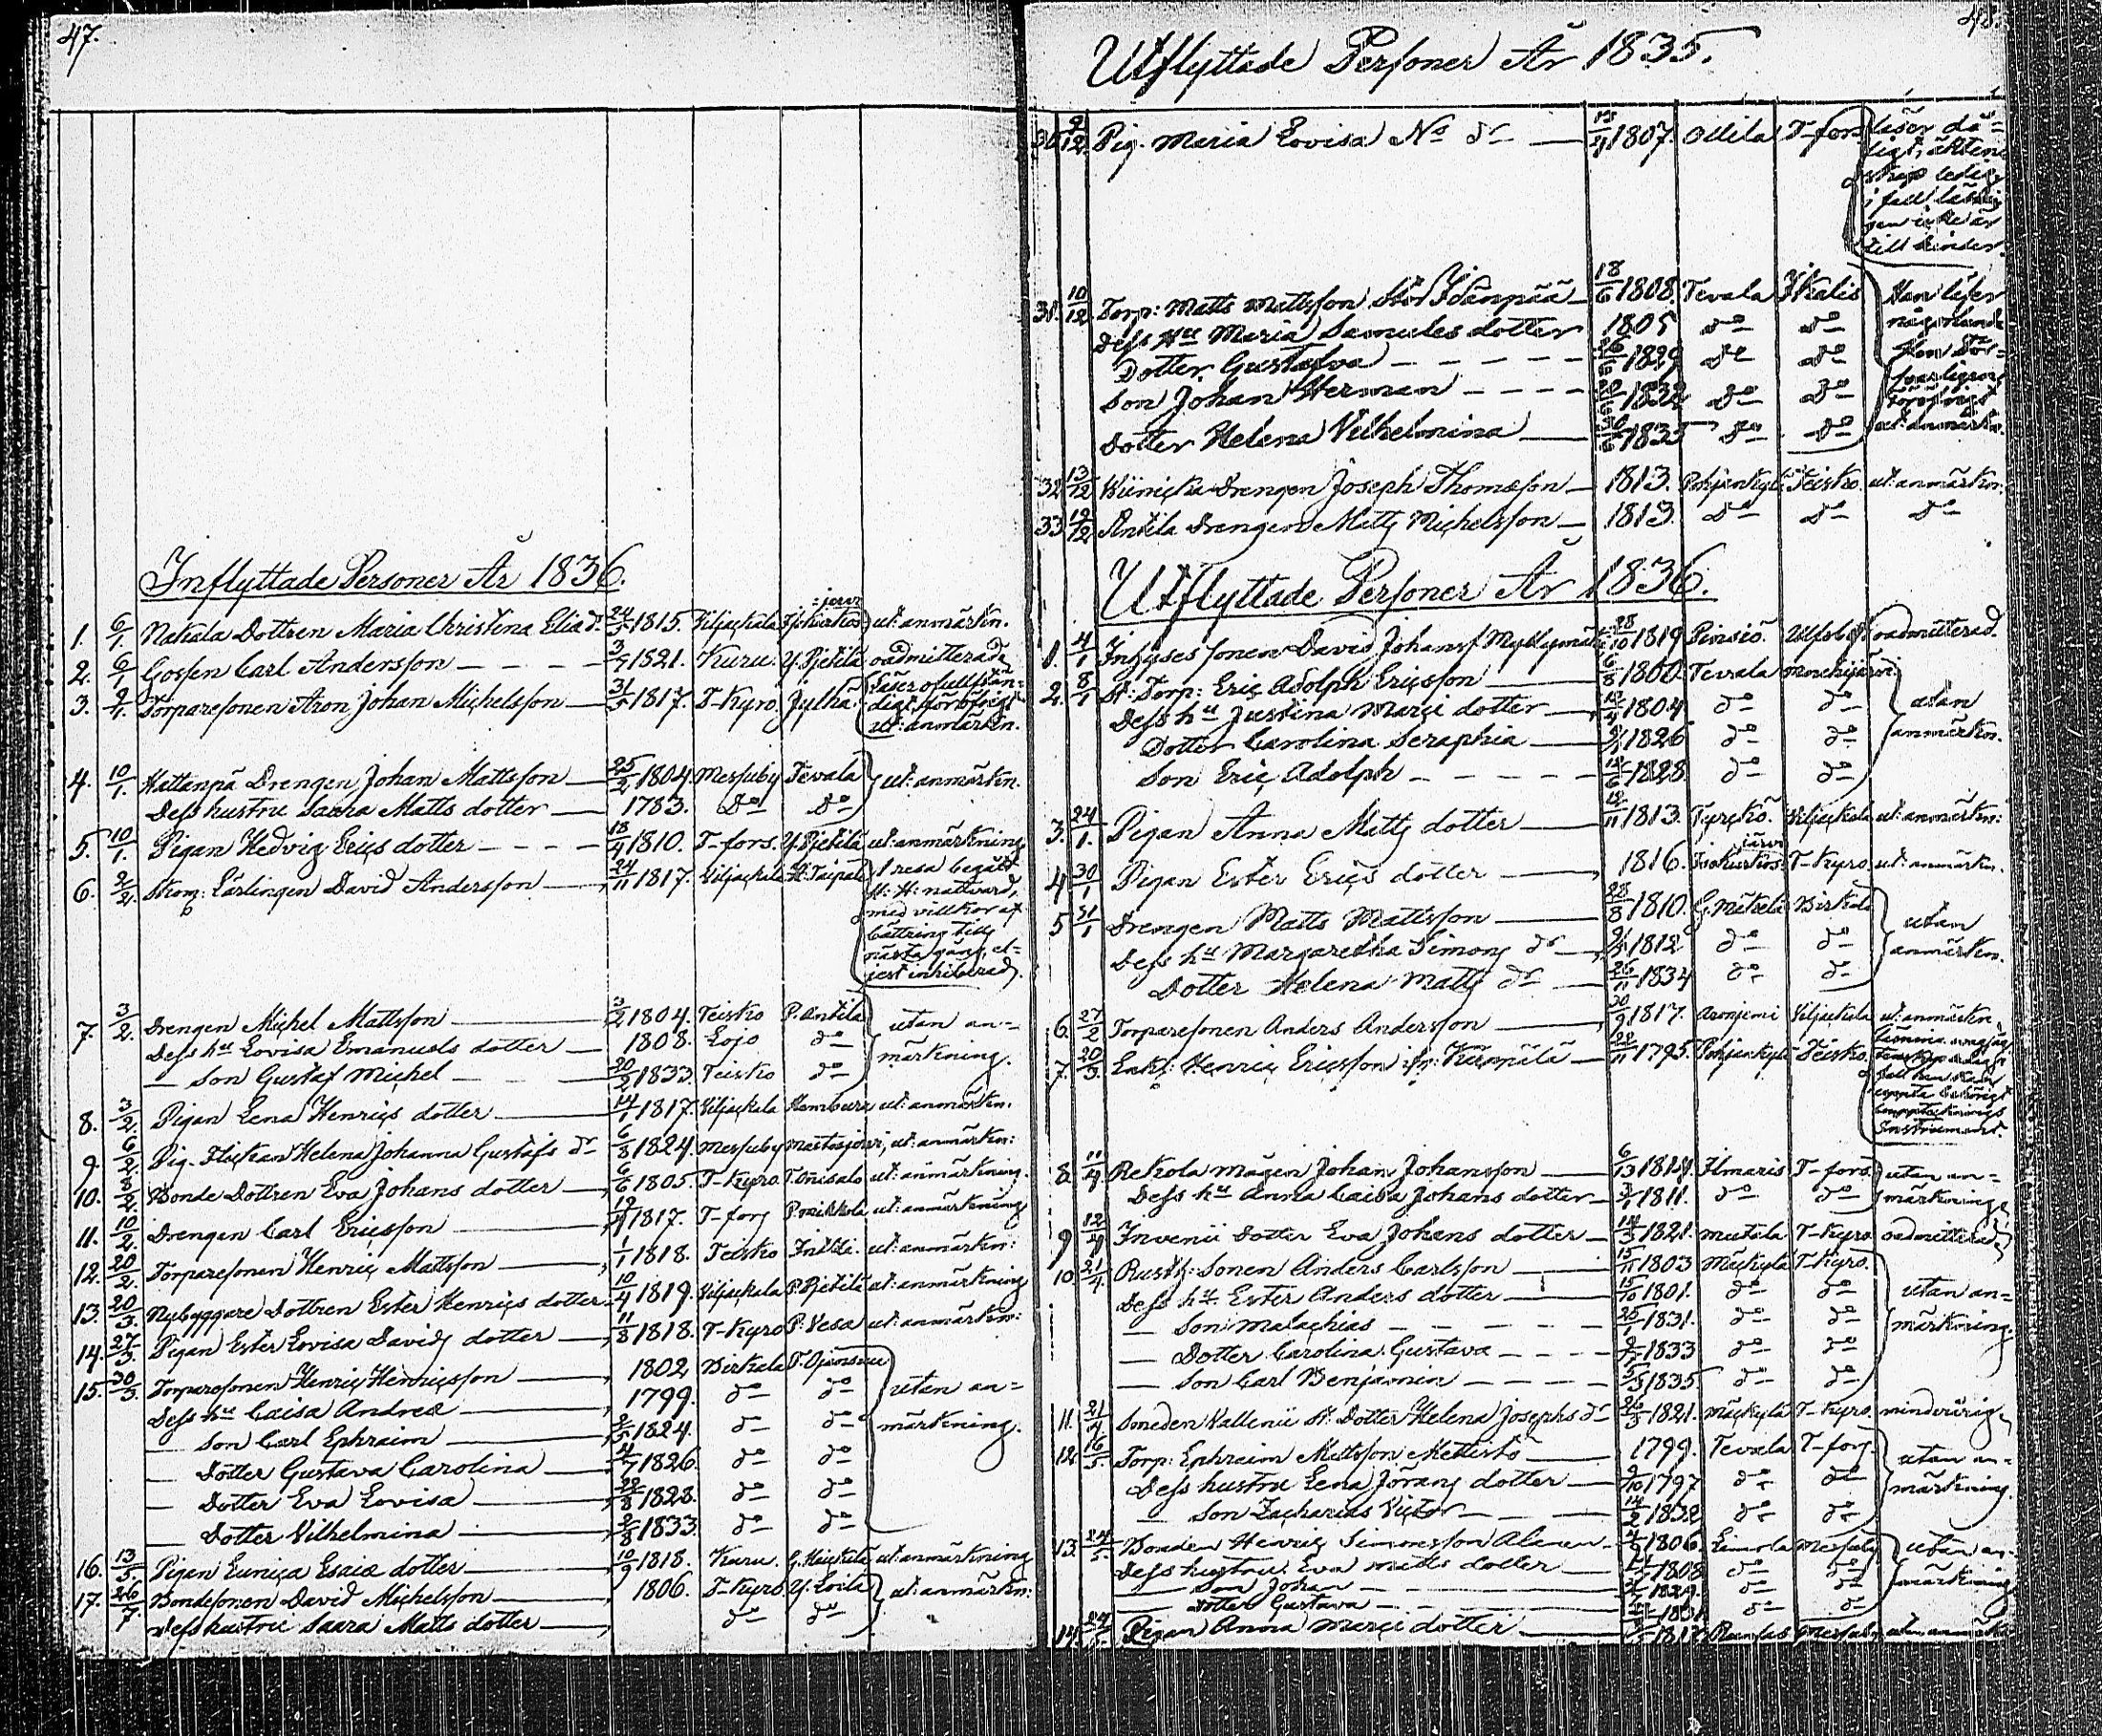 47.
Inflyttade Personer År 1836.
1. 6/1. Nakala Dottren Maria Christina Elia dr 24/5 1815. Viljackala ut: anmärkn.
2. 6/1 Gossen Carl Andersson 3/7 1821. Kuru. Y. Pjetilä oadmitterad
3. 9/1. Torparesonen Aron Johan Michelsson 31/5 1817. T-Kyro Julha läser ofullstän-
digt, föröfrigt
ut: anmärkn.
4. 10/1. Hattanpä Drengen Johan Mattsson 25/2 1804. Messuby Tevala ut: anmärkn.
Dess hustru Saara Matts dotter 1783. Do Do
5. 10/1. Pigan Hedvig Erics dotter 18/4 1810. T-fors. Y. Pjetilä ut: anmärkning
6. 2/2. Skom: Lärlingen David Andersson 24/11 1817. Viljackala 1 resa begått
H: H: nattvard,
med villkor af
bättring till
nästa gång, el-
jest inhiberad.
7. 3/2. Drengen Michel Mattsson 3/2 1804. Teisko P. Antila utan an-
Dess hu Lovisa Emanuels dotter 1808. Lojo do märkning.
— Son Gustaf Michel 20/2 1833. Teisko do
8. 3/2. Pigan Lena Henrics dotter 14/1 1817. Viljackala ut: anmärkn.
9. 6/2. Pig. Flickan Helena Johanna Gustafs dr 6/8 1824. Messuby ut: anmärkn:
10. Bonde Dottren Eva Johans dotter 6/6 1805. T-Kyro ut: anmärkning.
11. 10/2. Drengen Carl Ericsson 1817. T-fors ut: anmärkning
12. 20/2. Torparesonen Henric Mattsson 1/1 1818. Teisko ut: anmärkn:
13. 20/3. Nybyggare Dottren Ester Henrics dotter 10/4 1819. Viljackala P. Pjetilä ut: anmärkning
14. 27/3. Pigan Ester Lovisa Davids dotter 11/3 1818. T-Kyro P. Vesa ut: anmärkn:
15. 30/3. Torparesonen Henric Henricsson 1802 Birkala utan an-
Dess hu Caisa Andrea 1799. do do märkning.
— Son Carl Ephraim 1824. do do
— Dotter Gustava Carolina 4/7 1826. do do
— Dotter Eva Lovisa 22/8 1828. do do
— Dotter Vilhelmina 1833. do do
16. 13/5. Pigan Eunica Esaiæ dotter 10/9 1818. Kuru. ut: anmärkning
17. 26/7. Bondesonen David Michelsson 1806. T-Kyro ut: anmärkn:
Dess hustru Saara Matts dotter do do
48.
Utflyttade Personer År 1835.
30. 9/12. Pig. Maria Lovisa 1807. Ollila T-fors läser då-
ligt, äkten-
skap ledig,
i fall läsnin-
gen icke är
till hinder.
31. 10/12. Torp: Matts Mattsson 18/6 1808. Tevala Ikalis Han läser
Dess Hu Maria Samuels dotter 1805 do do någorlunda
Dotter Gustafva 1829 do do
Son Johan Herman 1832 do do föröfrigt
Dotter Helena Vilhelmina 1833 do do ut: anmärkn.
32. 13/12 Drengen Joseph Thomasson 1813. Pohjankylä Teisko. ut: anmärkn:
33. 19/12 Antila Drengen Matts Michelsson 1813. do do do
Utflyttade Personer År 1836.
1. 4/1 Inhyses sonen David Johanss. Myllymäki 28/10 1819 Pinsiö. Ulfsby oadmitterad.
2. 8/1 St: Torp: Eric Adolph Ericsson 6/8 1800. Tevala Mouhijärvi
Dess hu Justina Marci dotter 1804 do do utan
Dotter Carolina Seraphia 1826 do do anmärkn.
Son Eric Adolph 1828 do do
3. 24/1. Pigan Anna Matts dotter 12/11 1813. Tyrckö. Viljackala ut: anmärkn:
4. 30/1 Pigan Ester Erics dotter 1816. T-Kyro. ut: anmärkn.
5. 31/1 Drengen Matts Mattsson 28/8 1810. Birkala utan
Dess hu Margaretha Simons dr 1812 do do anmärkn.
Dotter Helena Matts dr 26/11 1834 do do
6. 27/2 Torparesonen Anders Andersson 30/9 1817. Viljackala ut: anmärkn.
7. 20/3. Enkl: Henric Ericsson 22/11 1795. Pohjankylä Teisko.
8. 11/4 Rekola mågen Johan Johansson 6/13 1814. Ilmaris T-fors. utan an-
Dess hu Anna Caisa Johans dotter 1811. do do märkning.
9. 12/4 Invenii Dotter Eva Johans dotter 14/3 1821. Mutala T-Kyro. oadmitterad.
10. 21/4. Rusth: Sonen Anders Carlsson 15/11 1803 Mäckylä T-Kyro.
Dess hu Ester Anders dotter 15/10 1801. do do utan an-
— Son Malachias 25/1 1831. do do märkning.
— Dotter Carolina Gustava 1833 do do
— Son Carl Benjamin 1835. do do
11. 21/4 Smeden Vallenii St. Dotter Helena Josephs dr 26/3 1821. Mäckylä T-Kyro. minderårig.
12. 16/5. Torp: Ephraim Mattsson 1799. Tevala T-fors utan an-
Dess hustru Lena Jörans dotter 9/10 1797 do do märkning.
Son Zacharias Victor 14/2 1832 do do
13. 24/5. Bonden Henric Simonsson 1806. Messuby utan an-
Dess hustru Eva Matts dotter 1808 do do märkning
— Son Johan 1829. do do
— Dotter Gustava 1831 do do
14. Pigan Anna Marci dotter